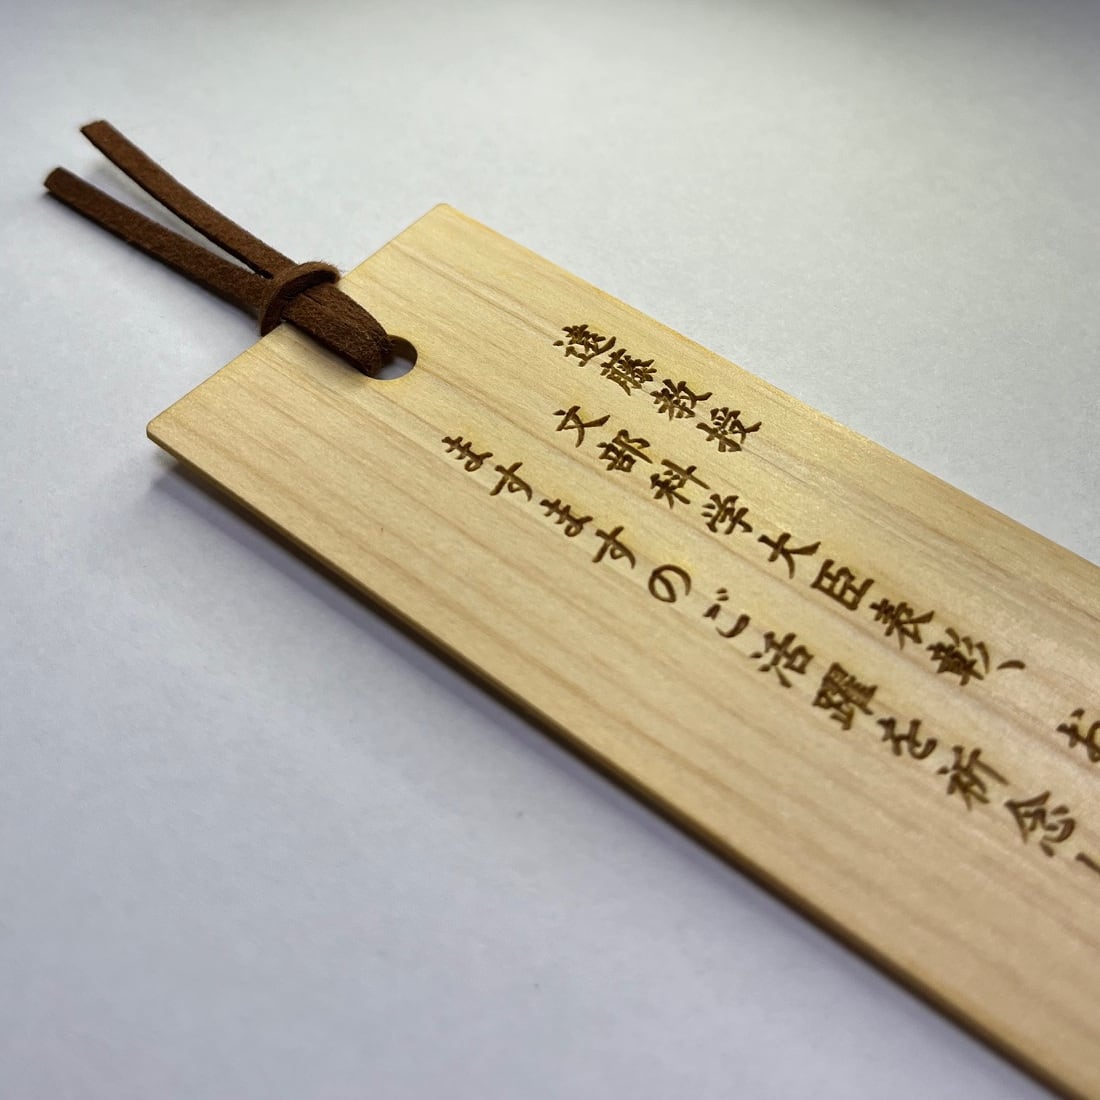 遠藤教授
文部科学大臣表彰、お
ますますのご活躍を祈念し